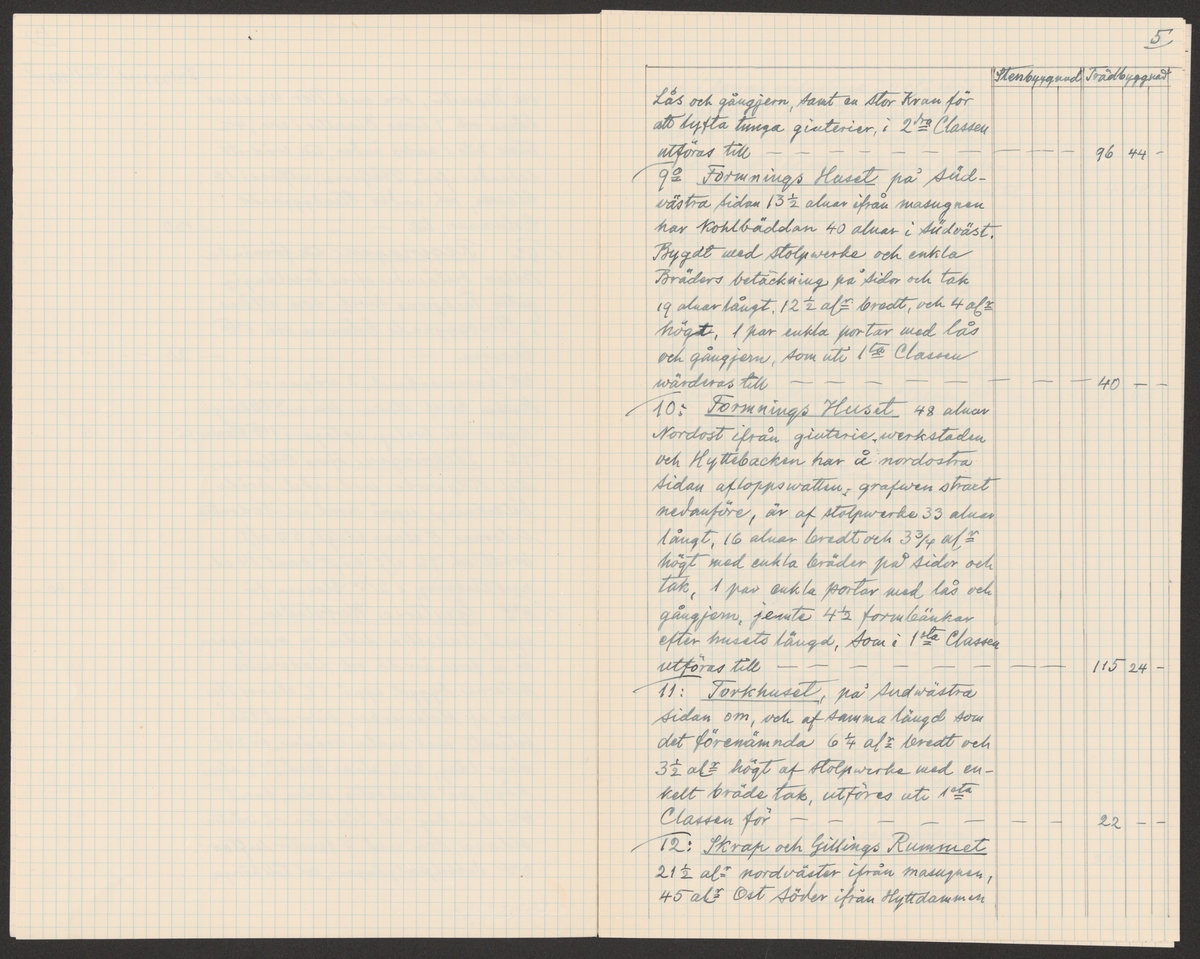 5
Stenbyggnad Trädbyggnad
Lås och gångjern, samt en stor Kran för
att lyfta tunga giuterier, i 2dra Classen
utföras till — — — — — — — — — — 96 44 -
9o Formnings Huset på süd-
västra sidan 13 1/2 alnar ifrån masugnen
har Kohlbäddan 40 alnar i südväst.
Bygdt med stolpwerke och enkla
Bräders betäckning på sidor och tak
19 alnar långt, 12 1/2 alr bredt, och 4 alr
högt, 1 par enkla portar med lås
och gångjern, som uti 1sta Classen
wärderas till — — — — — — — — — 40 - -
10: Formnings Huset 48 alnar
Nordost ifrån giuterie werkstaden
och Hyttebacken har å nordostra
sidan afloppswatten, grafwen straxt
nedanföre, är af stolpwerke 33 alnar
långt, 16 alnar bredt och 3 3/4 alr
högt med enkla bräder på sidor och
tak, 1 par enkla portar med lås och
gångjern, jemte 4 1/2 formbänkar
efter husets längd, som i 1sta Classen
utföras till — — — — — — — — — 115 24 -
11: Torkhuset, på sudwästra
sidan om, och af samma längd som
det förenämnda 6 1/4 alr bredt och
3 1/2 alr högt af stolpwerke med en-
kelt bräde tak, utföres uti 1sta
Classen för — — — — — — — — — 22 - -
12: Skrap och Gillings Rummet
21 1/2 alr nordväster ifrån masugnen,
45 alr Ost Söder ifrån Hyttdammen